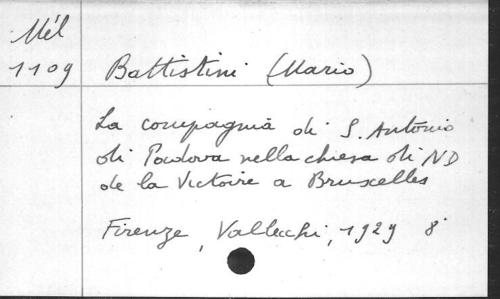 Mél
1109 Battistini (Mario)
La compagnia di S. Antonio
di Padova nella chiesa di ND
de la Victoire a Bruxelles
Firenze, Vallecchi, 1929 8°